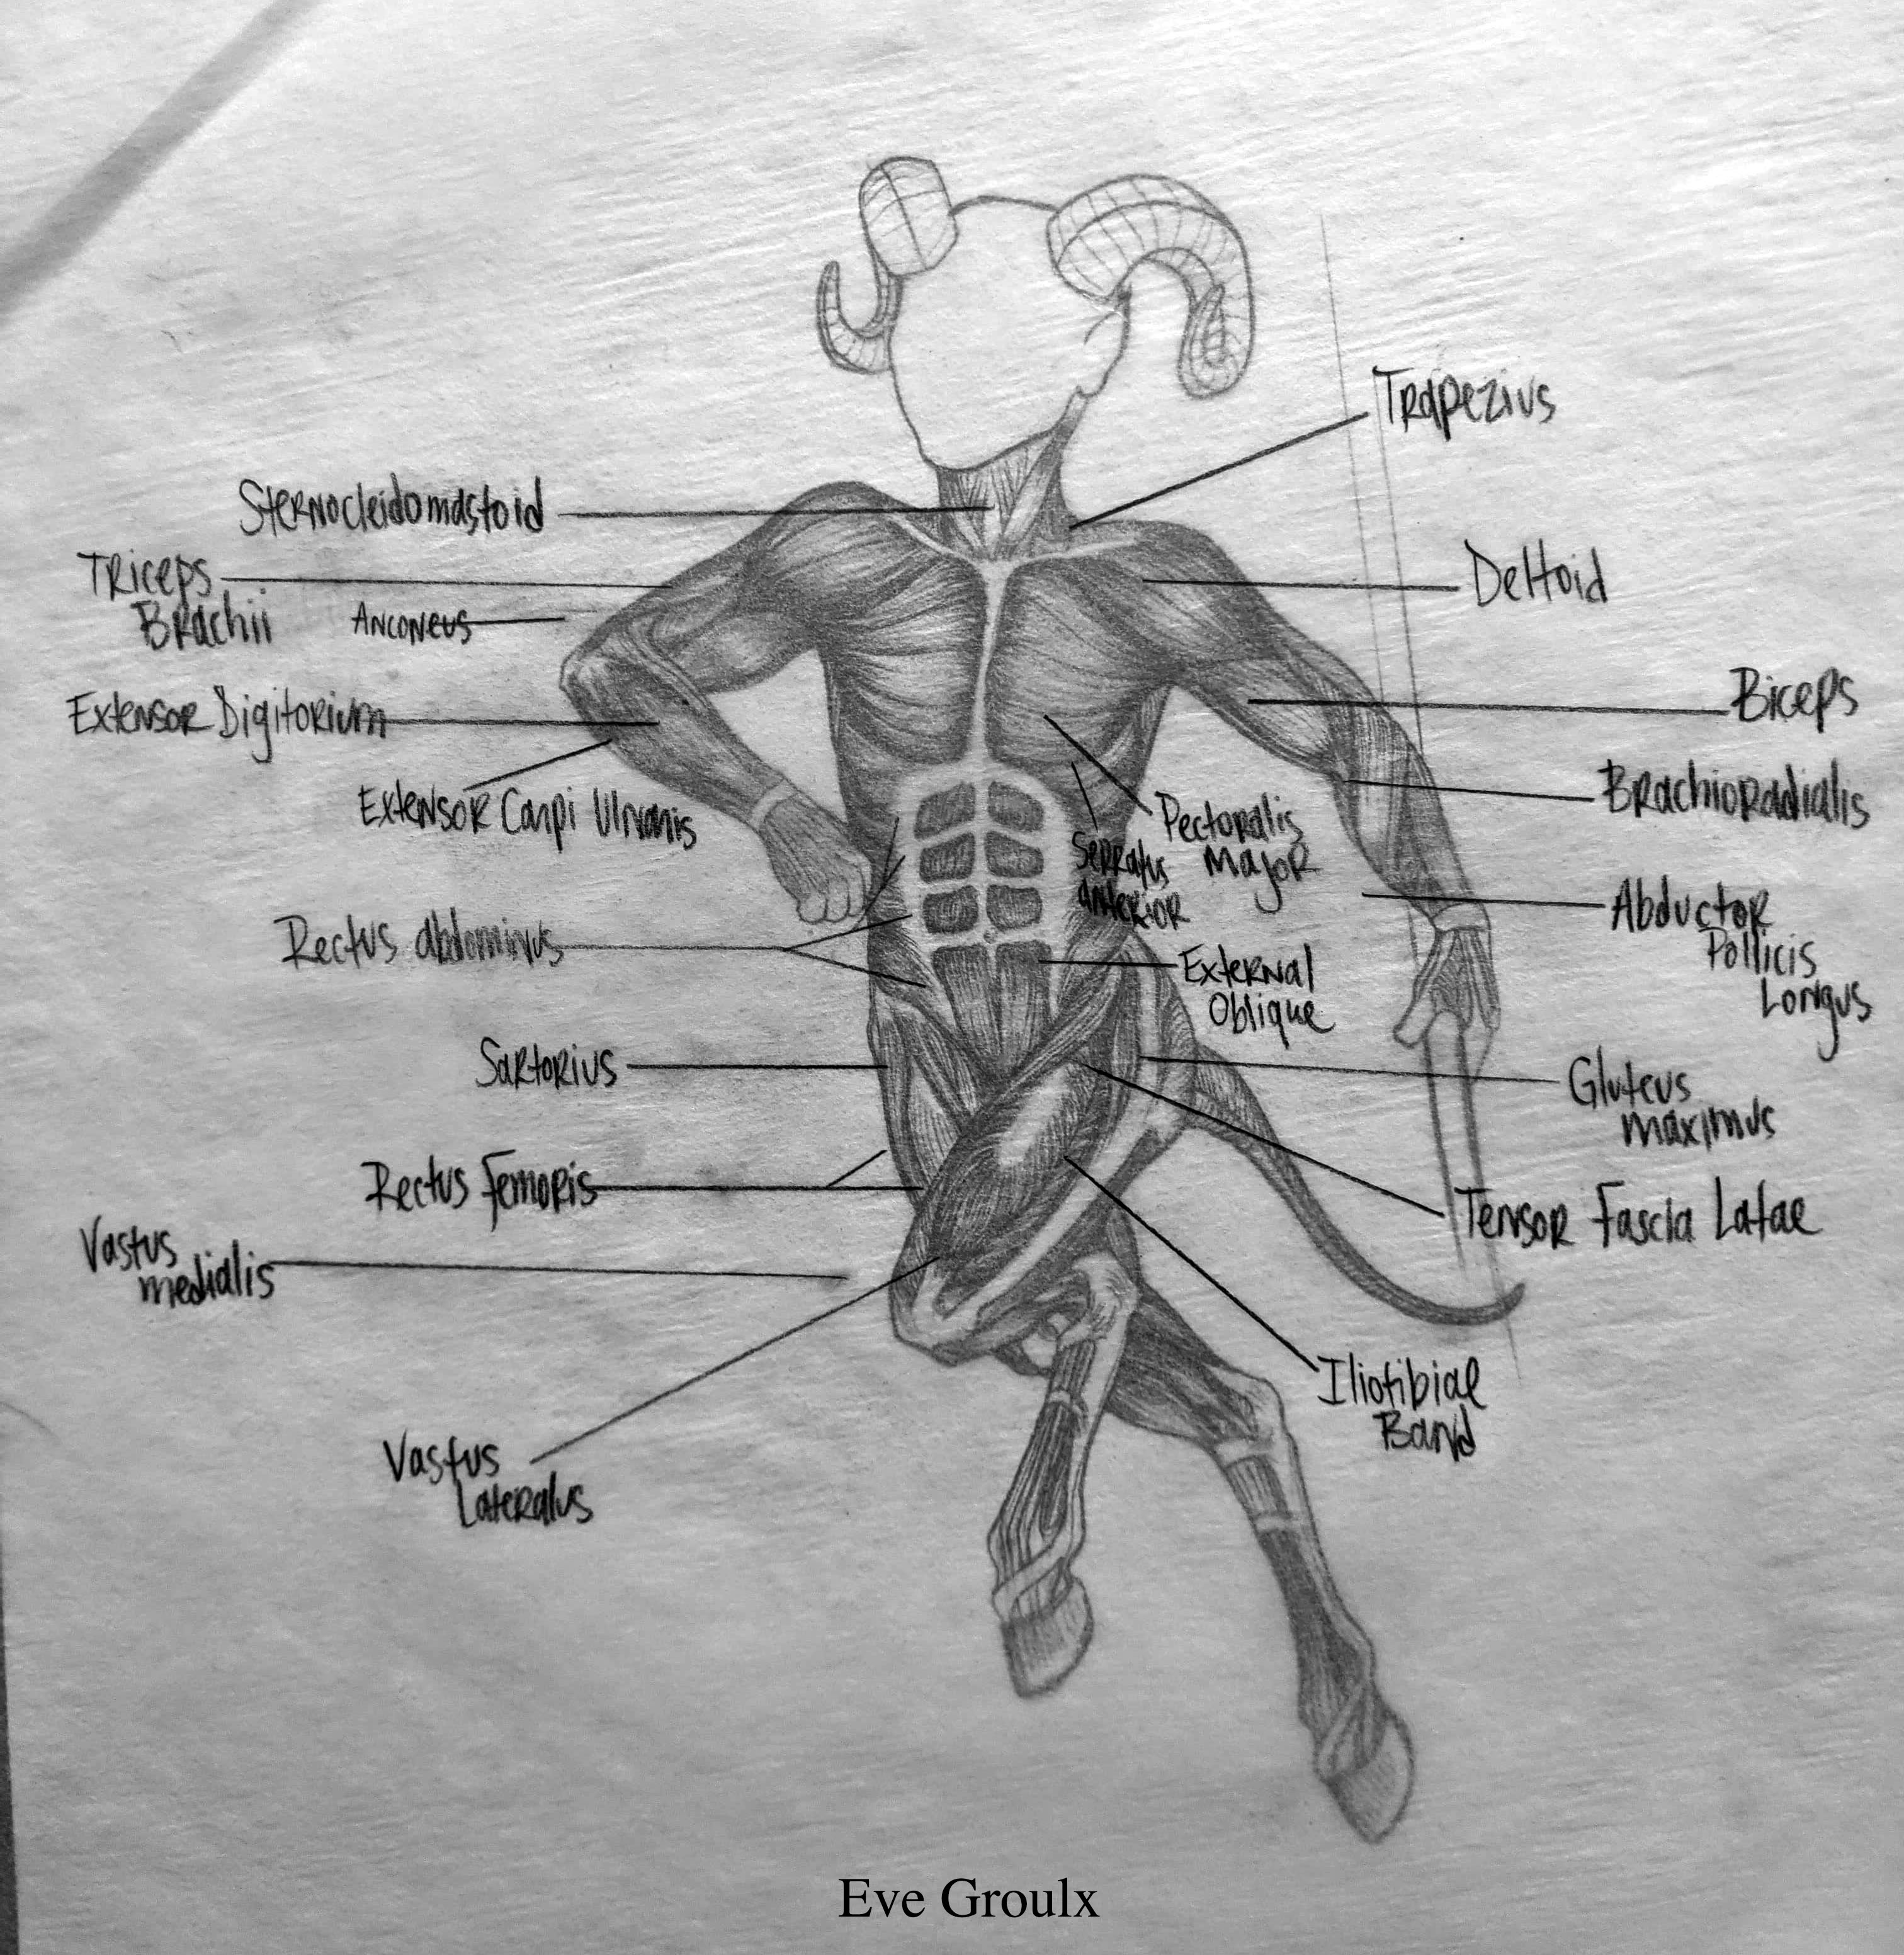 Trapezius
Sternocleidomastoid
Triceps
Brachii
Anconeus
Deltoid
Extensor Digitorium
Biceps
Extensor Carpi Ulnaris
Brachioradialis
Pectoralis
Major
Serratus
Anterior
Abductor
Pollicis
Longus
Rectus abdominus
External
Oblique
Sartorius
Gluteus
maximus
Rectus Femoris
Tensor Fascia Latae
Vastus
medialis
Iliotibiae
Band
Vastus
Lateralus
Eve Groulx